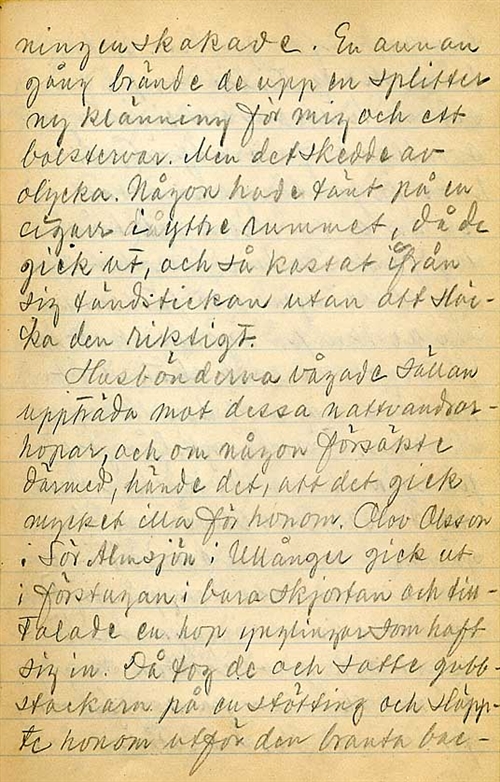 ningen skakade. En annan
gång brände de upp en splitter
ny klänning för mig och ett
bolstervar. Men det skedde av
olycka. Någon hade tänt på en
cigarr i yttre rummet, då de
gick ut, och så kastat ifrån
sig tändstickan utan att släc-
ka den riktigt.
Husbönderna vågade sällan
uppträda mot dessa nattvandrar-
hopar, och om någon försökte
därmed, hände det, att det gick
mycket illa för honom. Olov Olsson
i Sör Almsjön i Ullånger gick ut
i förstugan i bara skjortan och till-
talade en hop ynglingar som haft
sig in. Då tog de och satte gubb-
stackarn på en stötting och släpp-
te honom utför den branta bac-